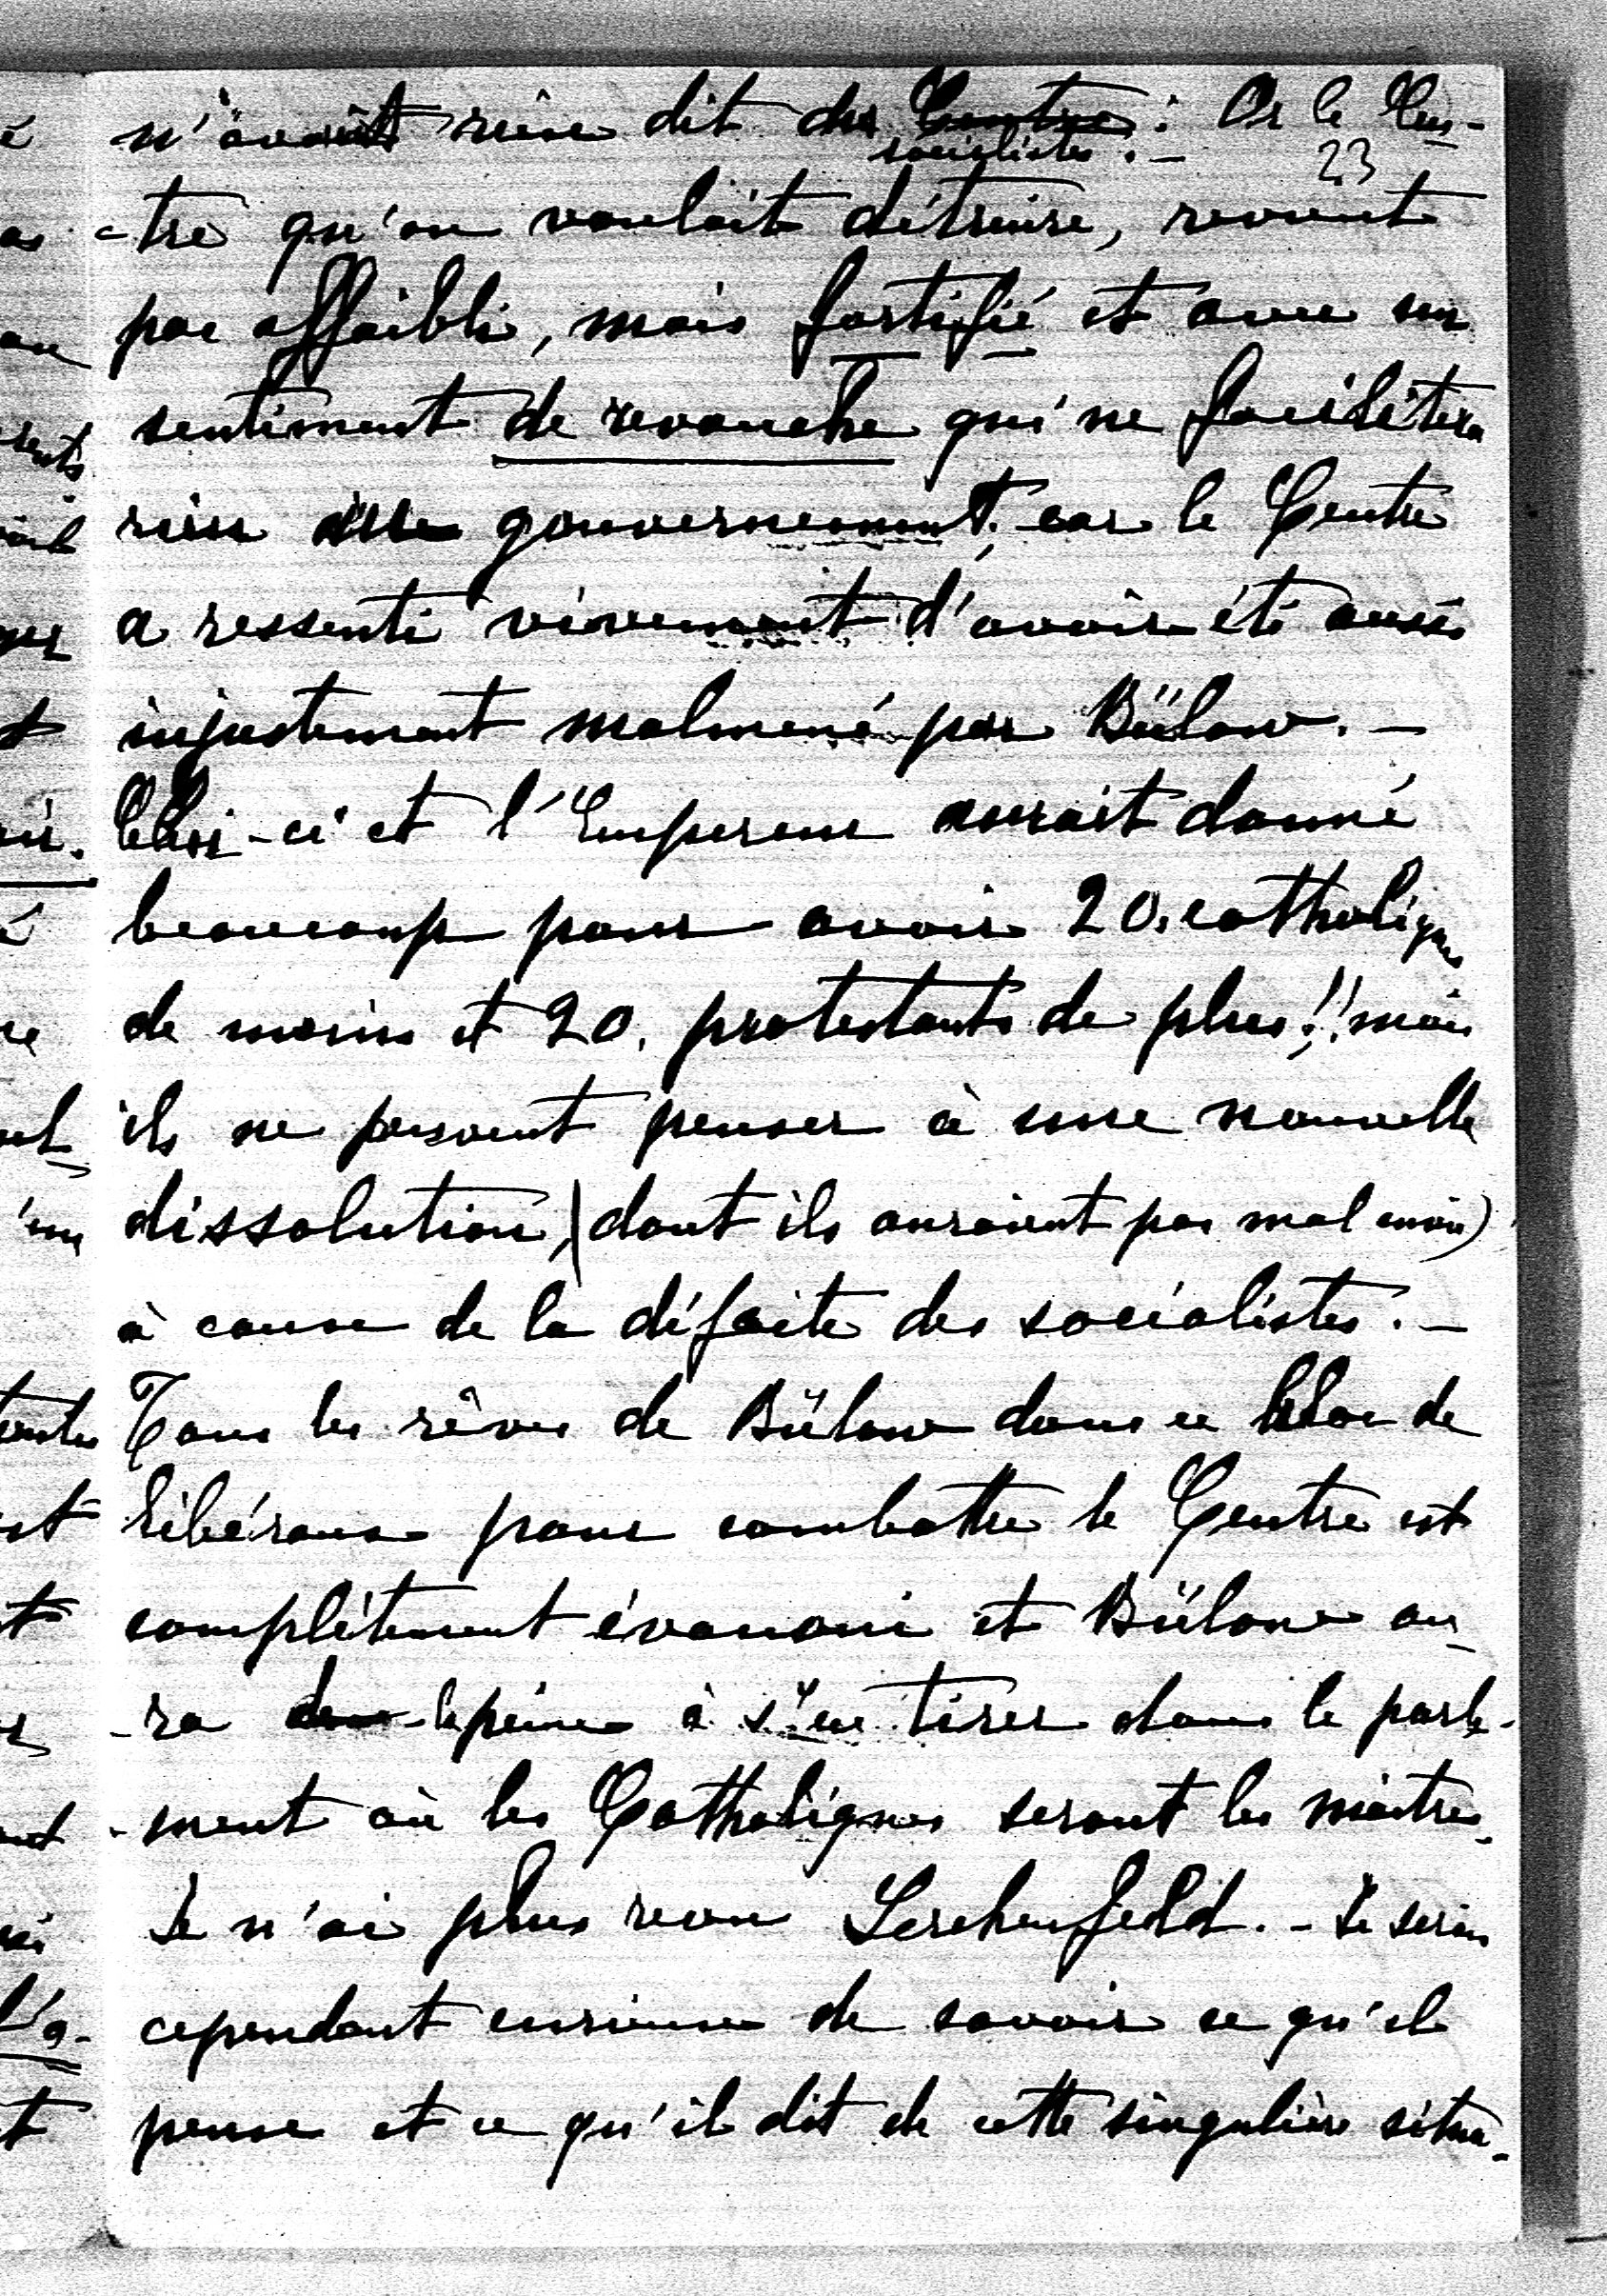 n'avait rien dit des Centre : Or le Cen-
socialistes . – 23
-tre qu'on voulait détruire, revient
pas affaibli, mais fortifié et avec un
sentiment de revanche qui ne facilitera
rien au gouvernement, car le Centre
a ressenti vivement d'avoir été aussi
injustement malmené par Bülow. –
Celui-ci et l'Empereur aurait donné
beaucoup pour avoir 20. catholiques
de moins et 20. protestants de plus!! mais
ils ne peuvent penser à une nouvelle
dissolution, (dont ils auraient pas mal envie)
à cause de la défaite des socialistes. –
Tous les rêves de Bülow dans ce bloc de
libéraux pour combattre le Centre est
complètement évanoui et Bülow au-
-ra de la peine à s'en tirer dans le parle-
-ment où les Catholiques seront les maîtres.
Je n'ai plus revu Lerchenfeld. – Je serais
cependant curieuse de savoir ce qu'il
pense et ce qu'il dit de cette singulière situa-